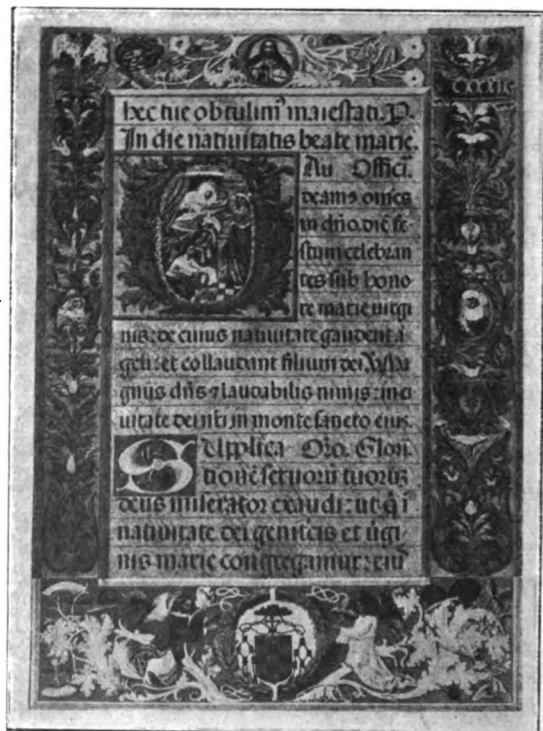 hec tue obtulim᷒ maiestati. P.
In die nativitatis beate marie.
Au Offici.
deam᷒ omĩes
in dño. diẽ fe-
stum celebran
tes sub hono
re marie uirgi
nis: de cuius natiuitate gaudent ã
geli: et collaudant filium dei
gnus dñs ⁊ laudabilis nimis: in ci
uitate dei nri in monte sancto eius.
Upplica Oro. Glori.
seruorũ tuorũ
deus miserator exaudi: ut q̃ ĩ
natiuitate dei genitcis et ũgi
nis marie congregamur: eiu᷒